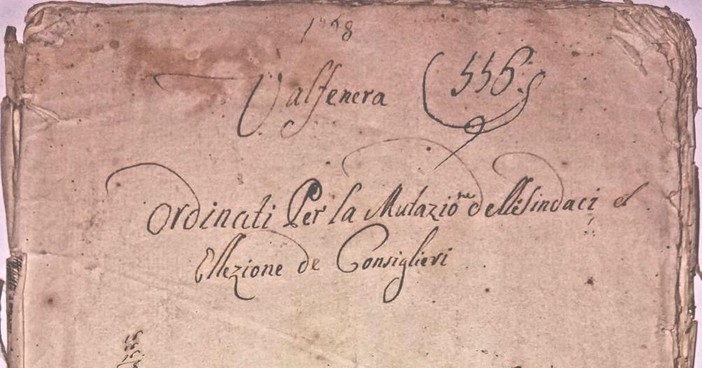 Valfenera 556.
Ordinati Per la Mutazione delli Sindaci et
Ellezione de Consiglieri